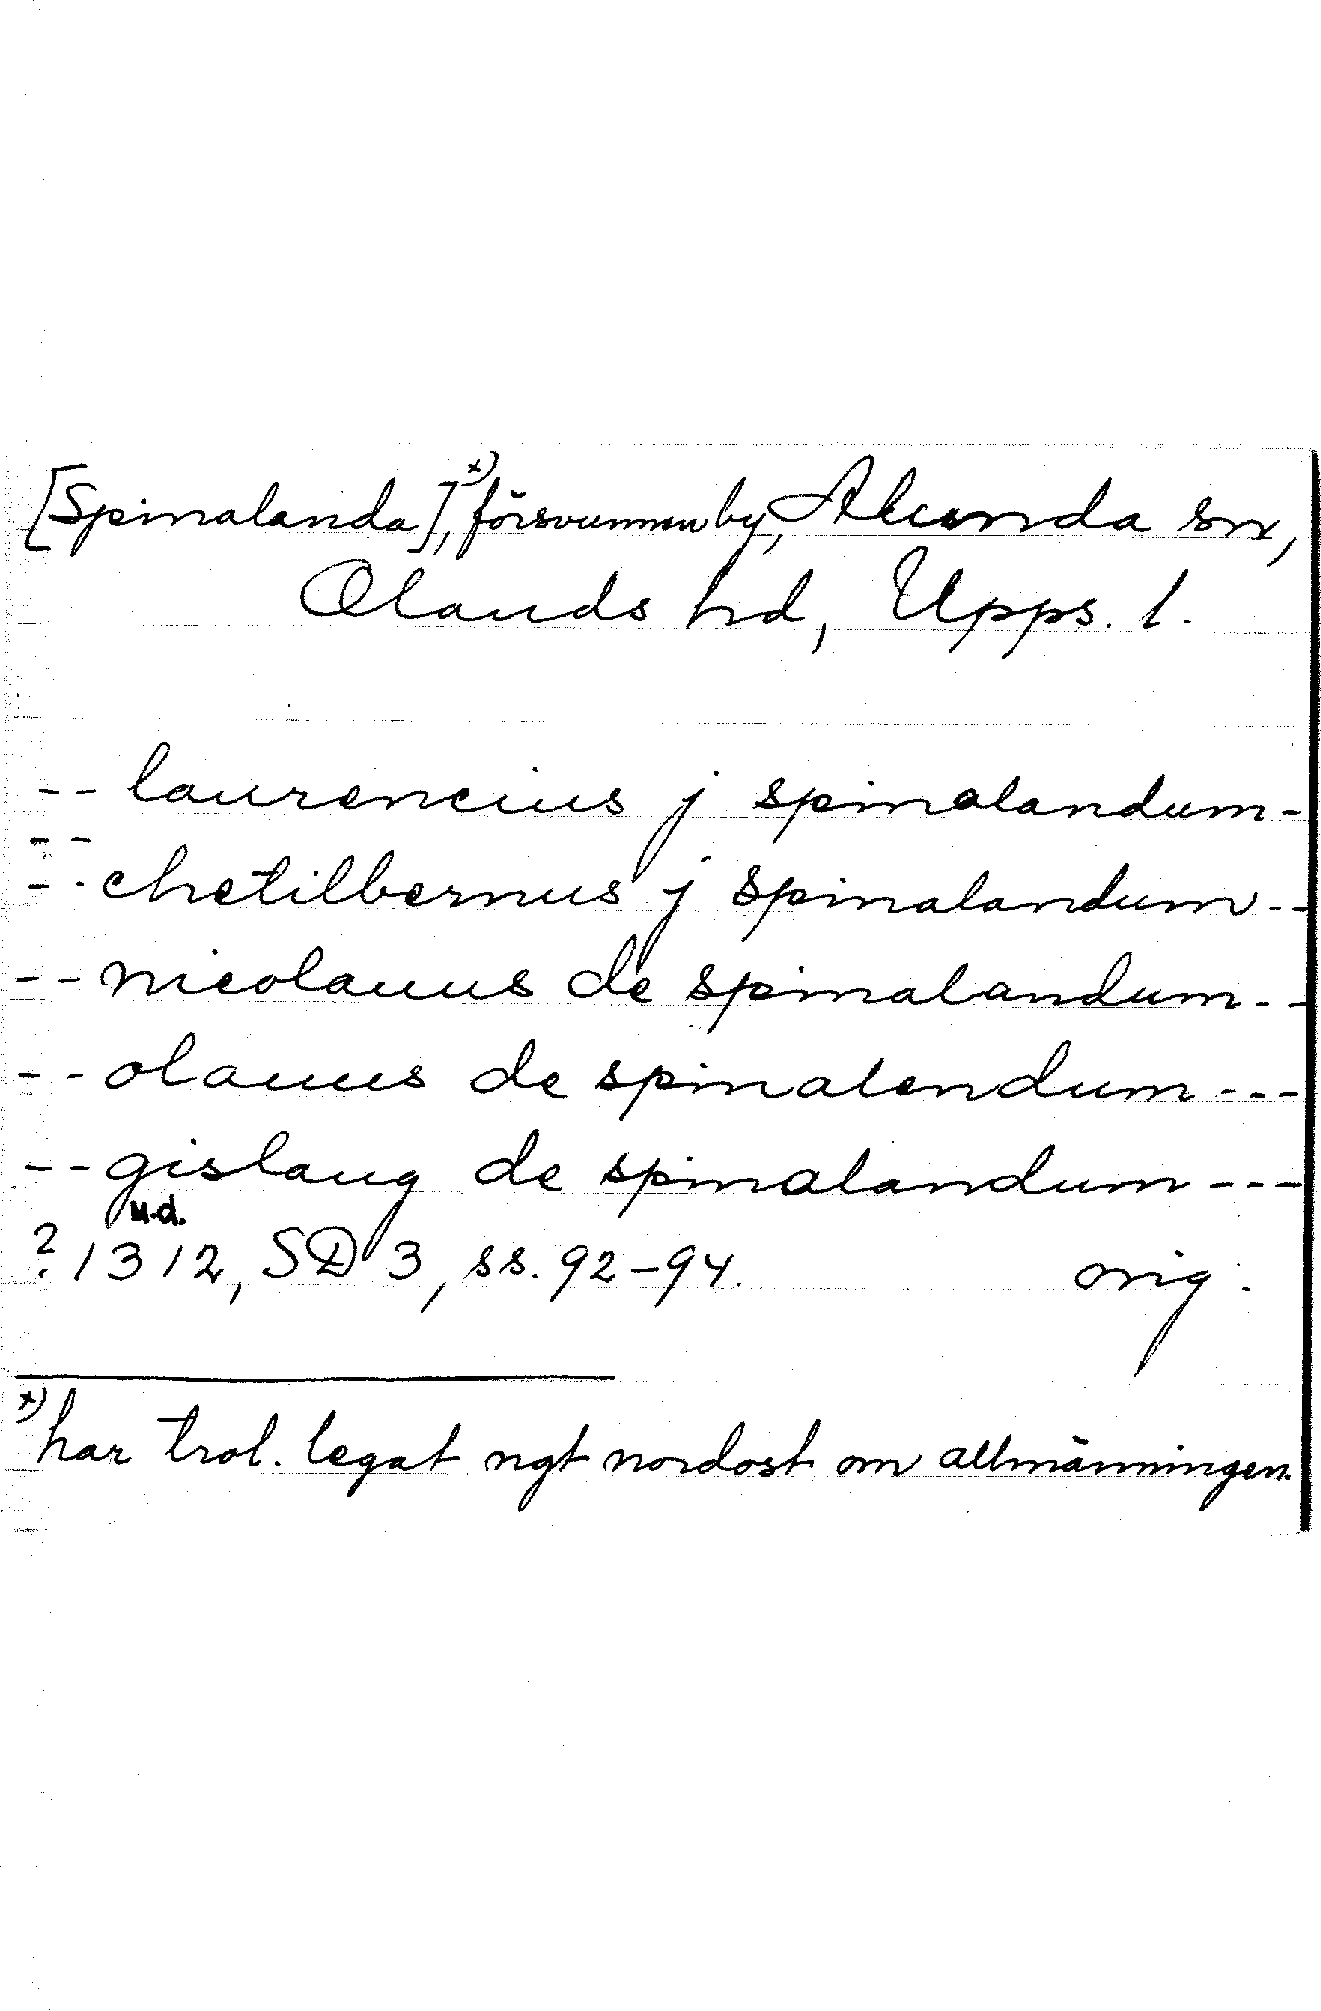 [Spinalanda],ˣ⁾ försvunnen by, Alunda sn,
Olands hd, Upps. l.
-- laurencius j spinalandum -
--
-- chetilbernus j spinalandum --
-- nicolauus de spinalandum --
-- olauus de spinalendum ---
-- gislaug de spinalandum ---
u.d.
? 1312, SD 3, ss. 92-94. orig.
ˣ⁾ har trol. legat ngt nordost om allmänningen.